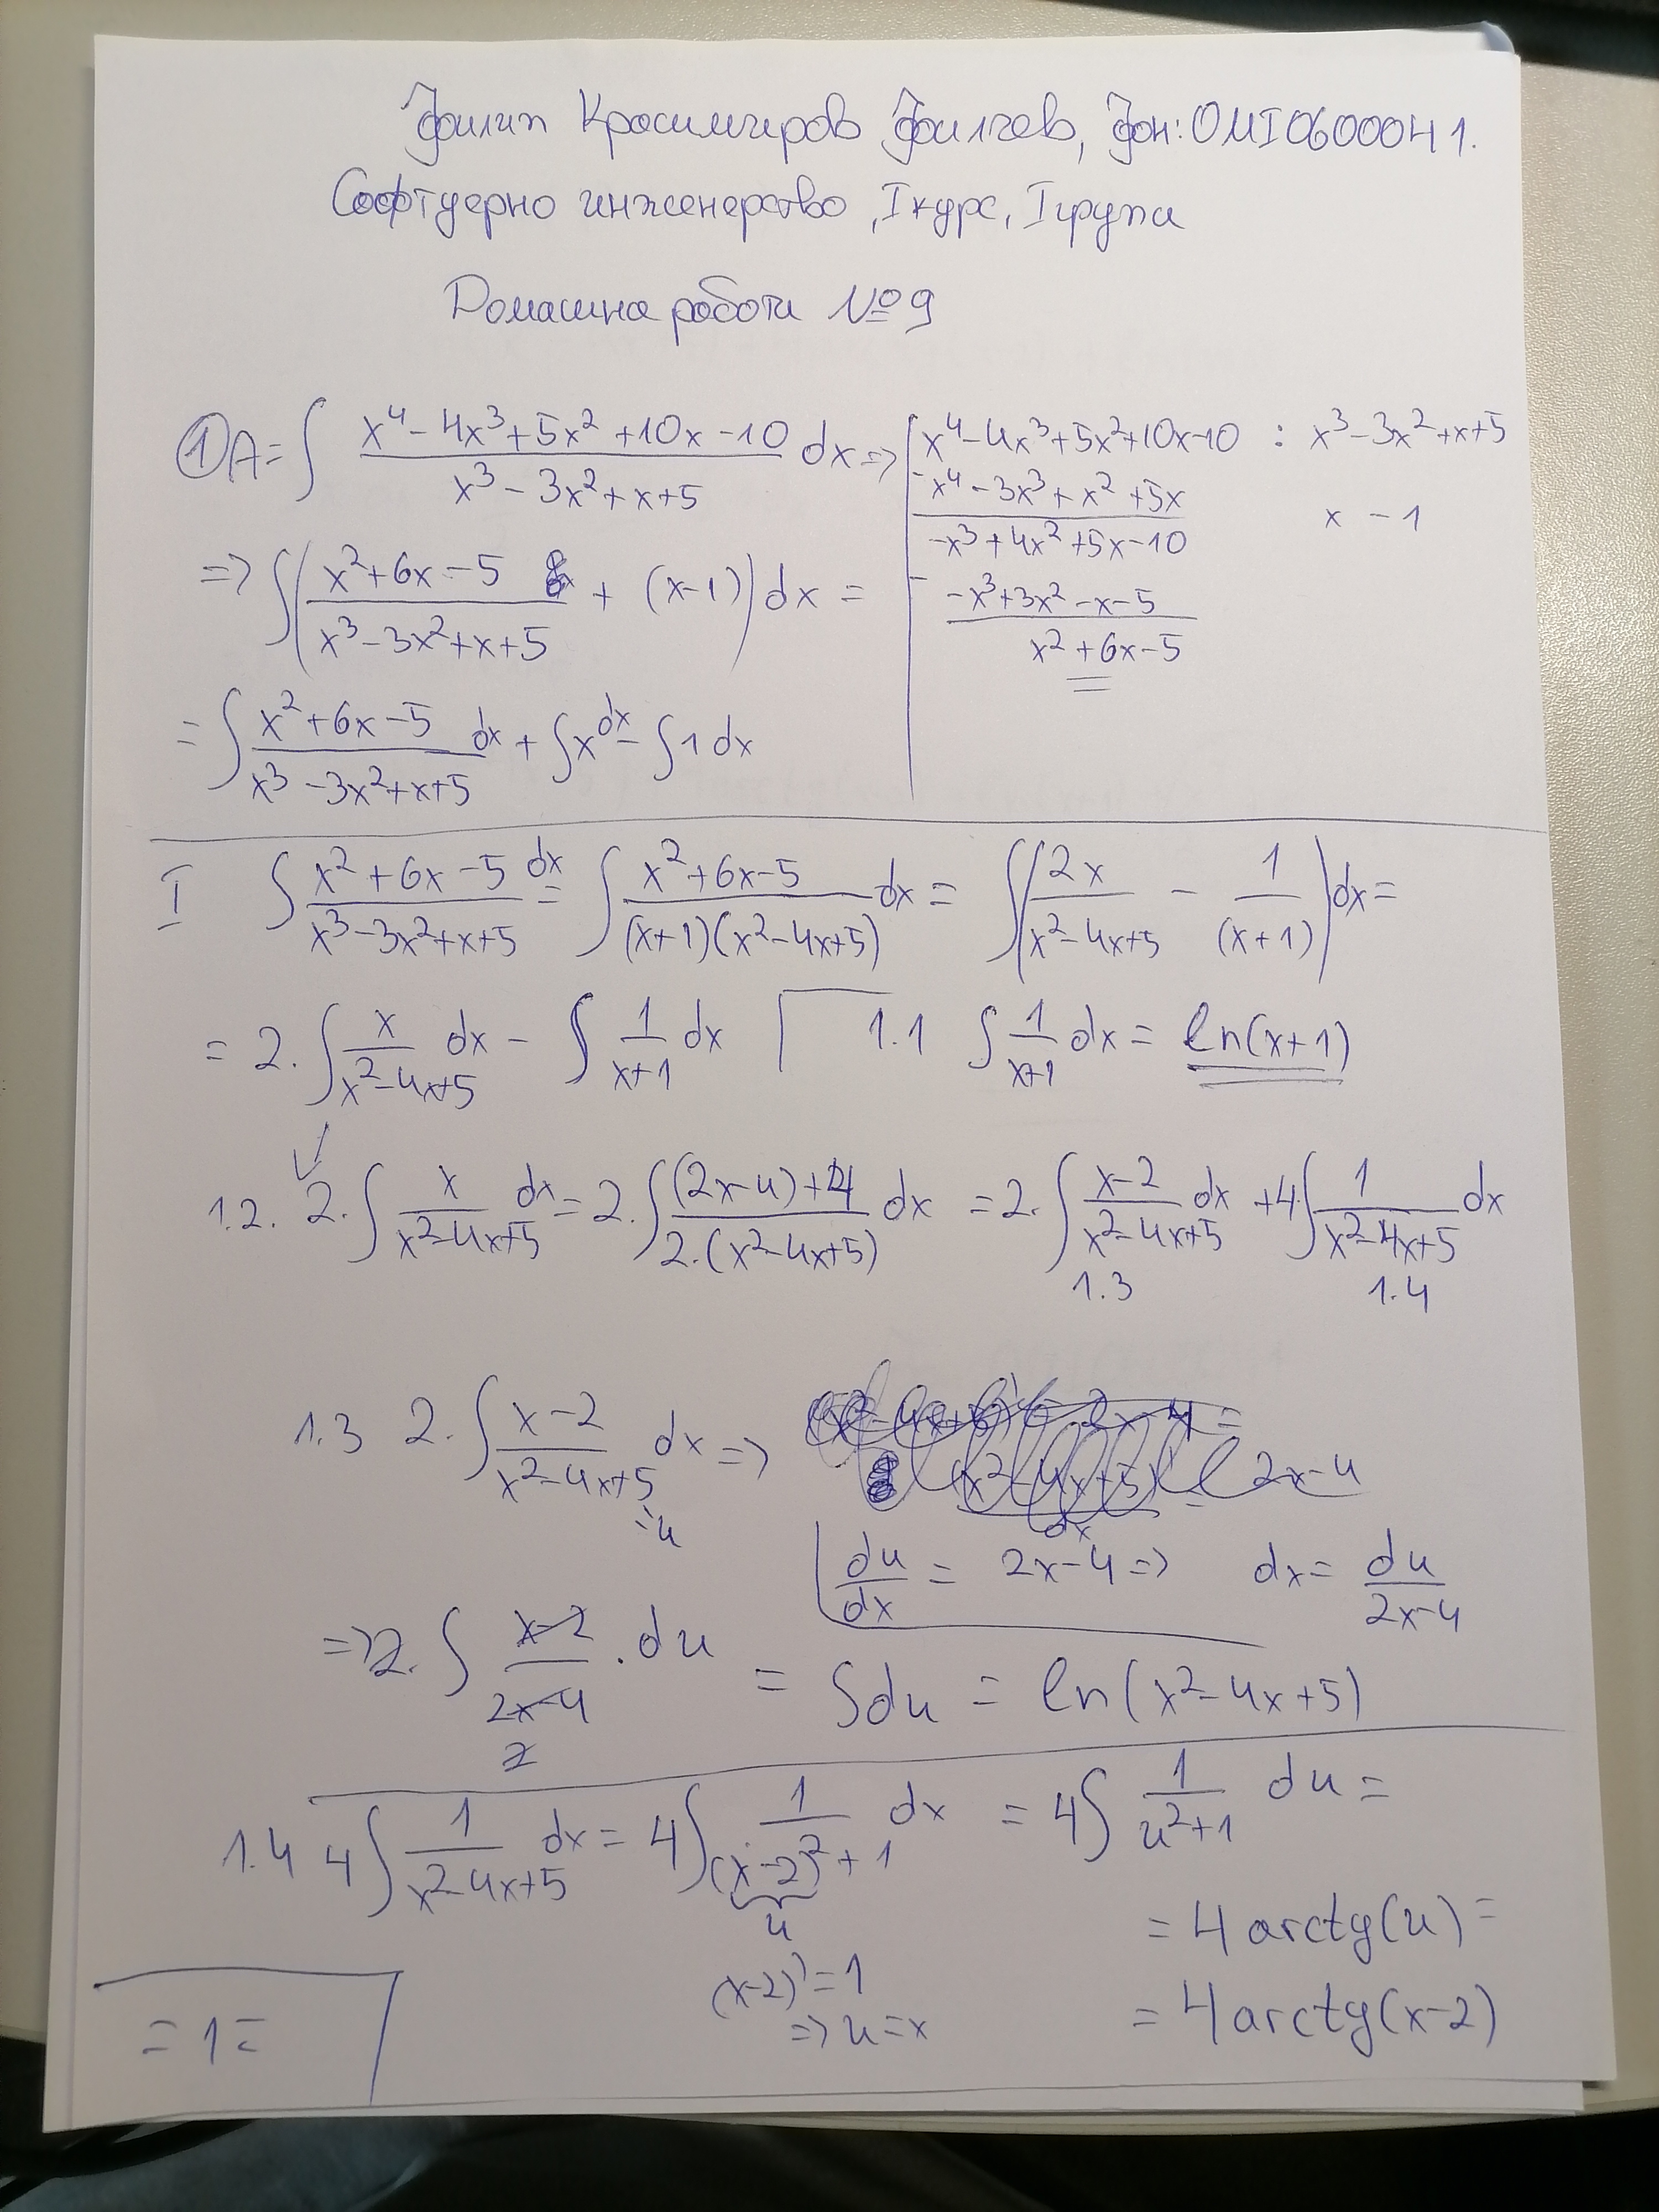 Филип Красимиров Филчев, фн: 0MI0600041.
Софтуерно инженерство, I курс, I група
Домашна работа №9
① A = ∫ (x⁴ - 4x³ + 5x² + 10x - 10)/(x³ - 3x² + x + 5) dx =>
x⁴ - 4x³ + 5x² + 10x - 10 : x³ - 3x² + x + 5
- x⁴ - 3x³ + x² + 5x
x - 1
-x³ + 4x² + 5x - 10
- -x³ + 3x² - x - 5
x² + 6x - 5
=> ∫((x² + 6x - 5)/(x³ - 3x² + x + 5) + (x-1)) dx =
= ∫ (x² + 6x - 5)/(x³ - 3x² + x + 5) dx + ∫x dx - ∫1 dx
I ∫ (x² + 6x - 5)/(x³ - 3x² + x + 5) dx = ∫ (x² + 6x - 5)/((x+1)(x² - 4x + 5)) dx = ∫(2x/(x² - 4x + 5) - 1/(x+1)) dx =
= 2. ∫ x/(x² - 4x + 5) dx - ∫ 1/(x+1) dx
1.1 ∫ 1/(x+1) dx = ln(x+1)
1.2. 2. ∫ x/(x² - 4x + 5) dx = 2. ∫ ((2x-4)+4)/(2.(x² - 4x + 5)) dx = 2. ∫ (x-2)/(x² - 4x + 5) dx + 4. ∫ 1/(x² - 4x + 5) dx
1.3 1.4
1.3 2. ∫ (x-2)/(x² - 4x + 5) dx =>
= u
du/dx = 2x-4 => dx = du/(2x-4)
=> 2. ∫ (x-2)/(2x-4) . du = ∫du = ln(x² - 4x + 5)
2
1.4 4 ∫ 1/(x² - 4x + 5) dx = 4 ∫ 1/((x-2)² + 1) dx = 4 ∫ 1/(u² + 1) du =
u
= 4 arctg(u) =
(x-2)' = 1
=> u = x
= 4 arctg(x-2)
= 1 =